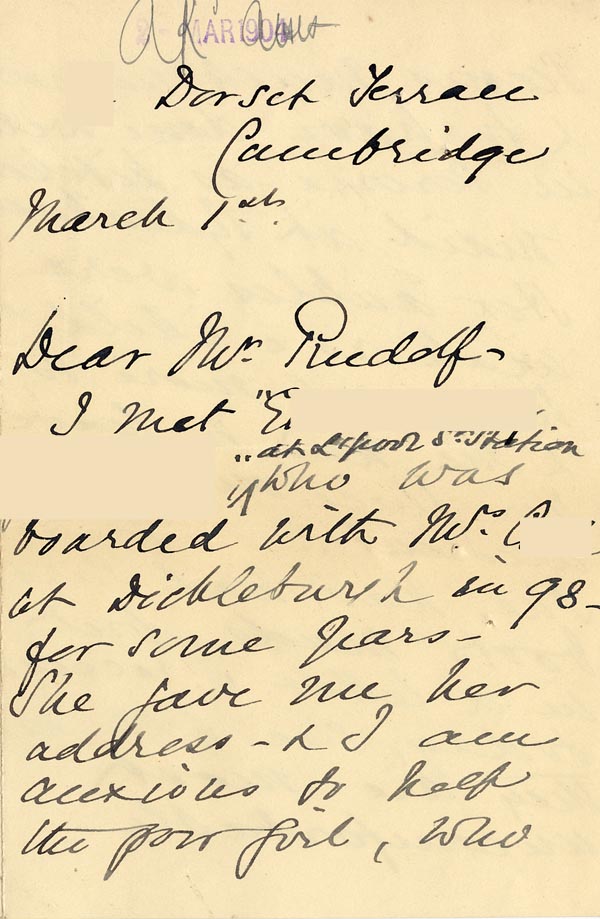 2 - MAR 1904
Dorset Terrace
Cambridge
March 1st
Dear Mr Rudolf -
I met "E
" at L'pool St Station
who was
boarded with Mrs C
at Dickleburgh in 98 -
for some years -
She gave me her
address - & I am
anxious to help
the poor girl, who